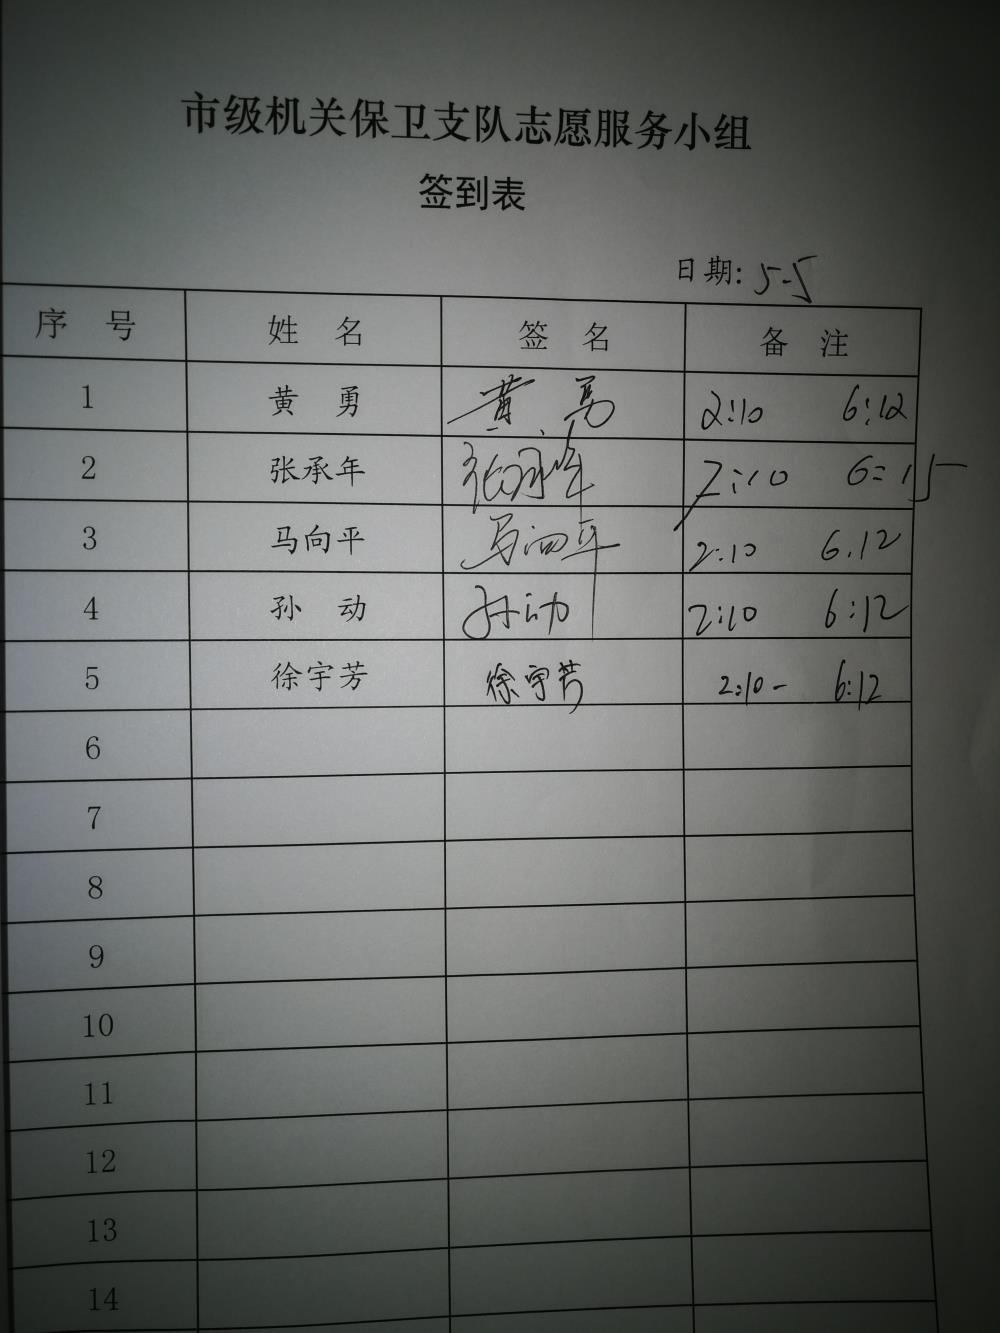 市级机关保卫支队志愿服务小组
签到表
日期: 5-5
序 号 姓 名 签 名 备 注
1 黄 勇 黄 勇 2:10 6:12
2 张承年 张承年 2:10 6:15
3 马向平 马向平 2:10 6.12
4 孙 动 孙动 2:10 6:12
5 徐宇芳 徐宇芳 2:10- 6:12
6
7
8
9
10
11
12
13
14